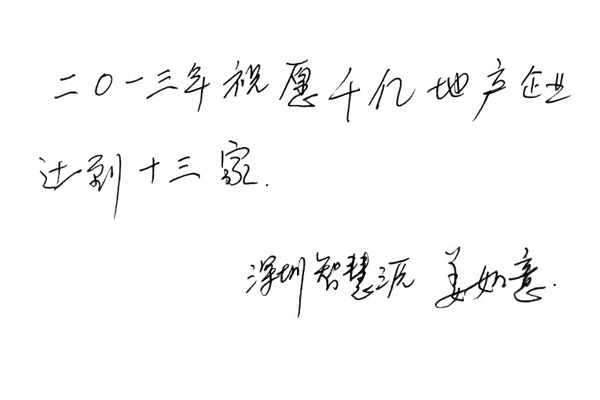 二〇一三年祝愿千亿地产企业
达到十三家.
深圳智慧源 姜如意.